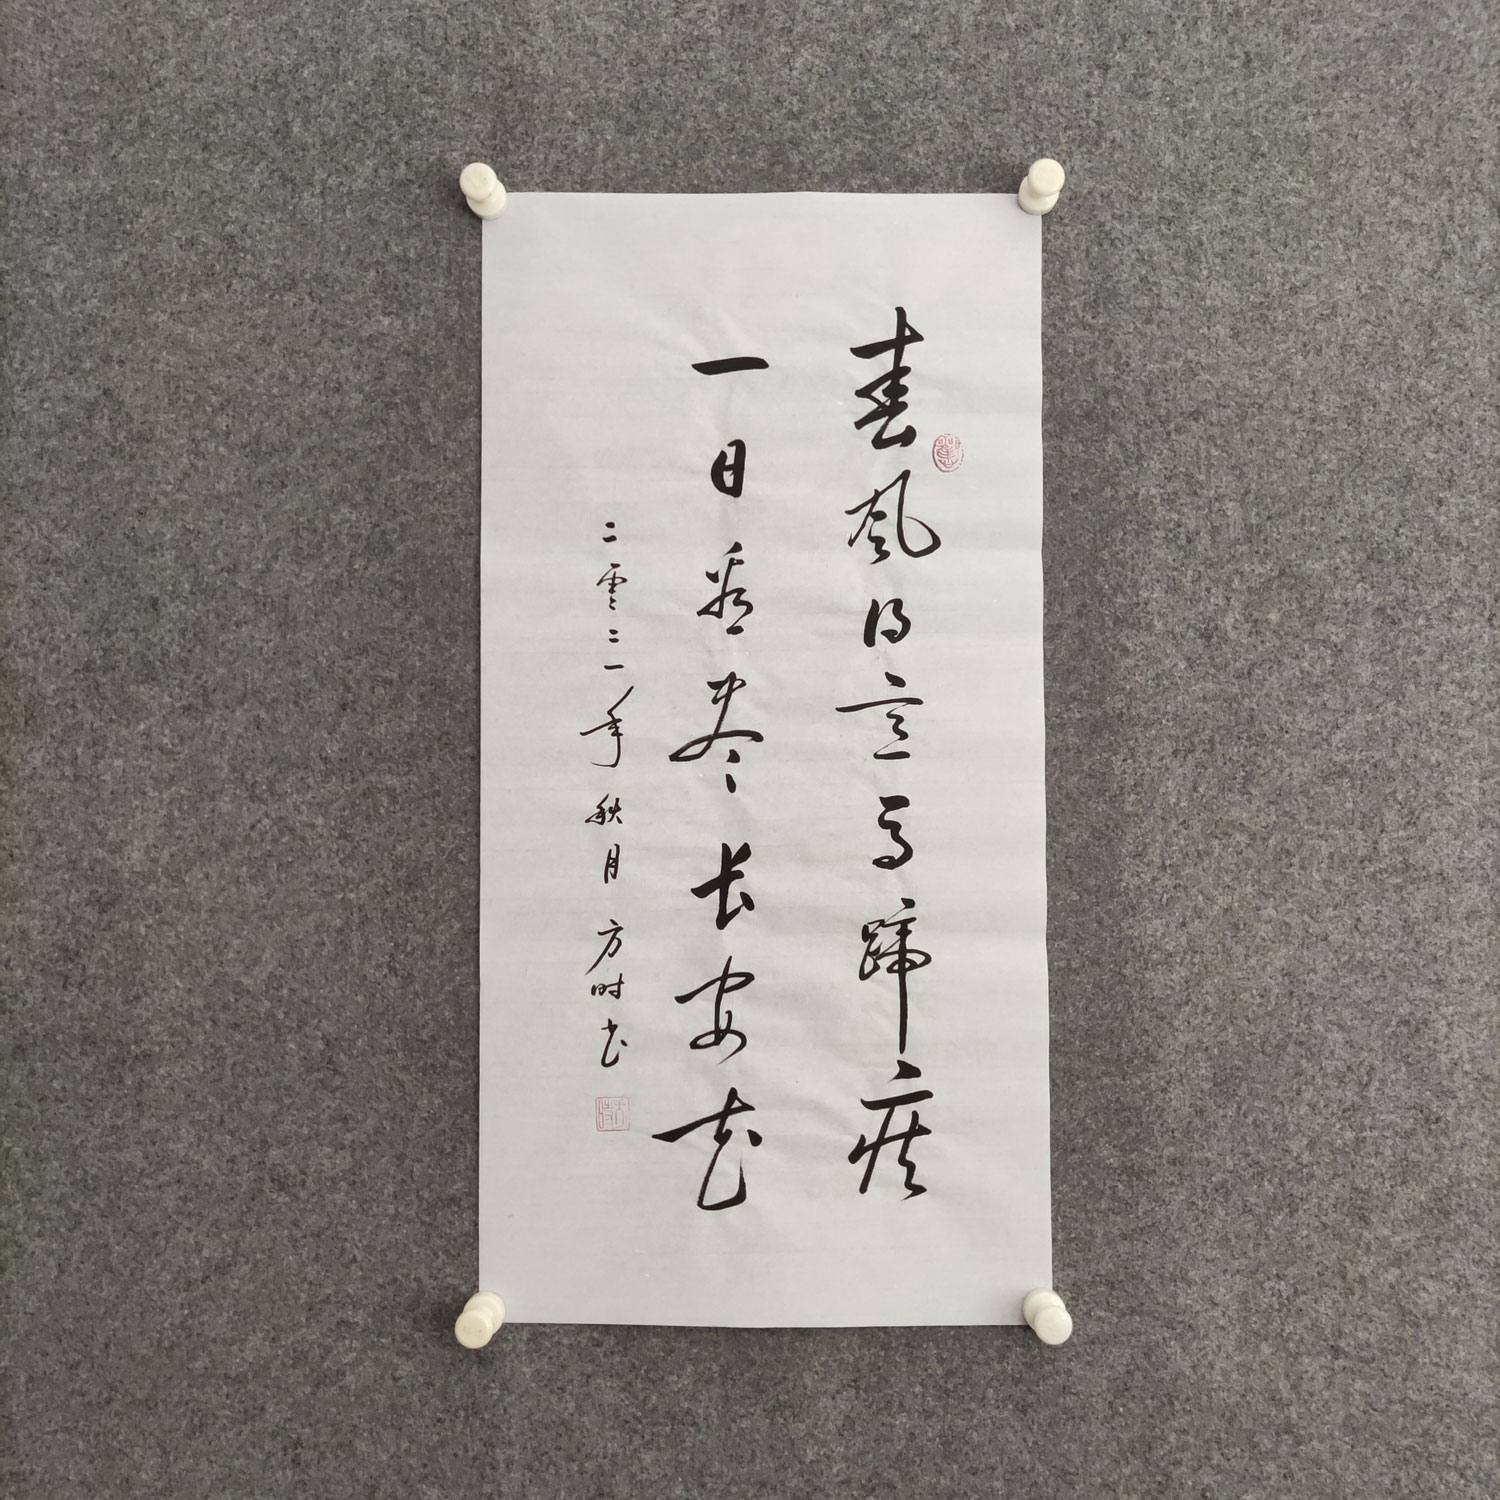 春风得意马蹄疾
一日看尽长安花
二零二一年秋月方时书